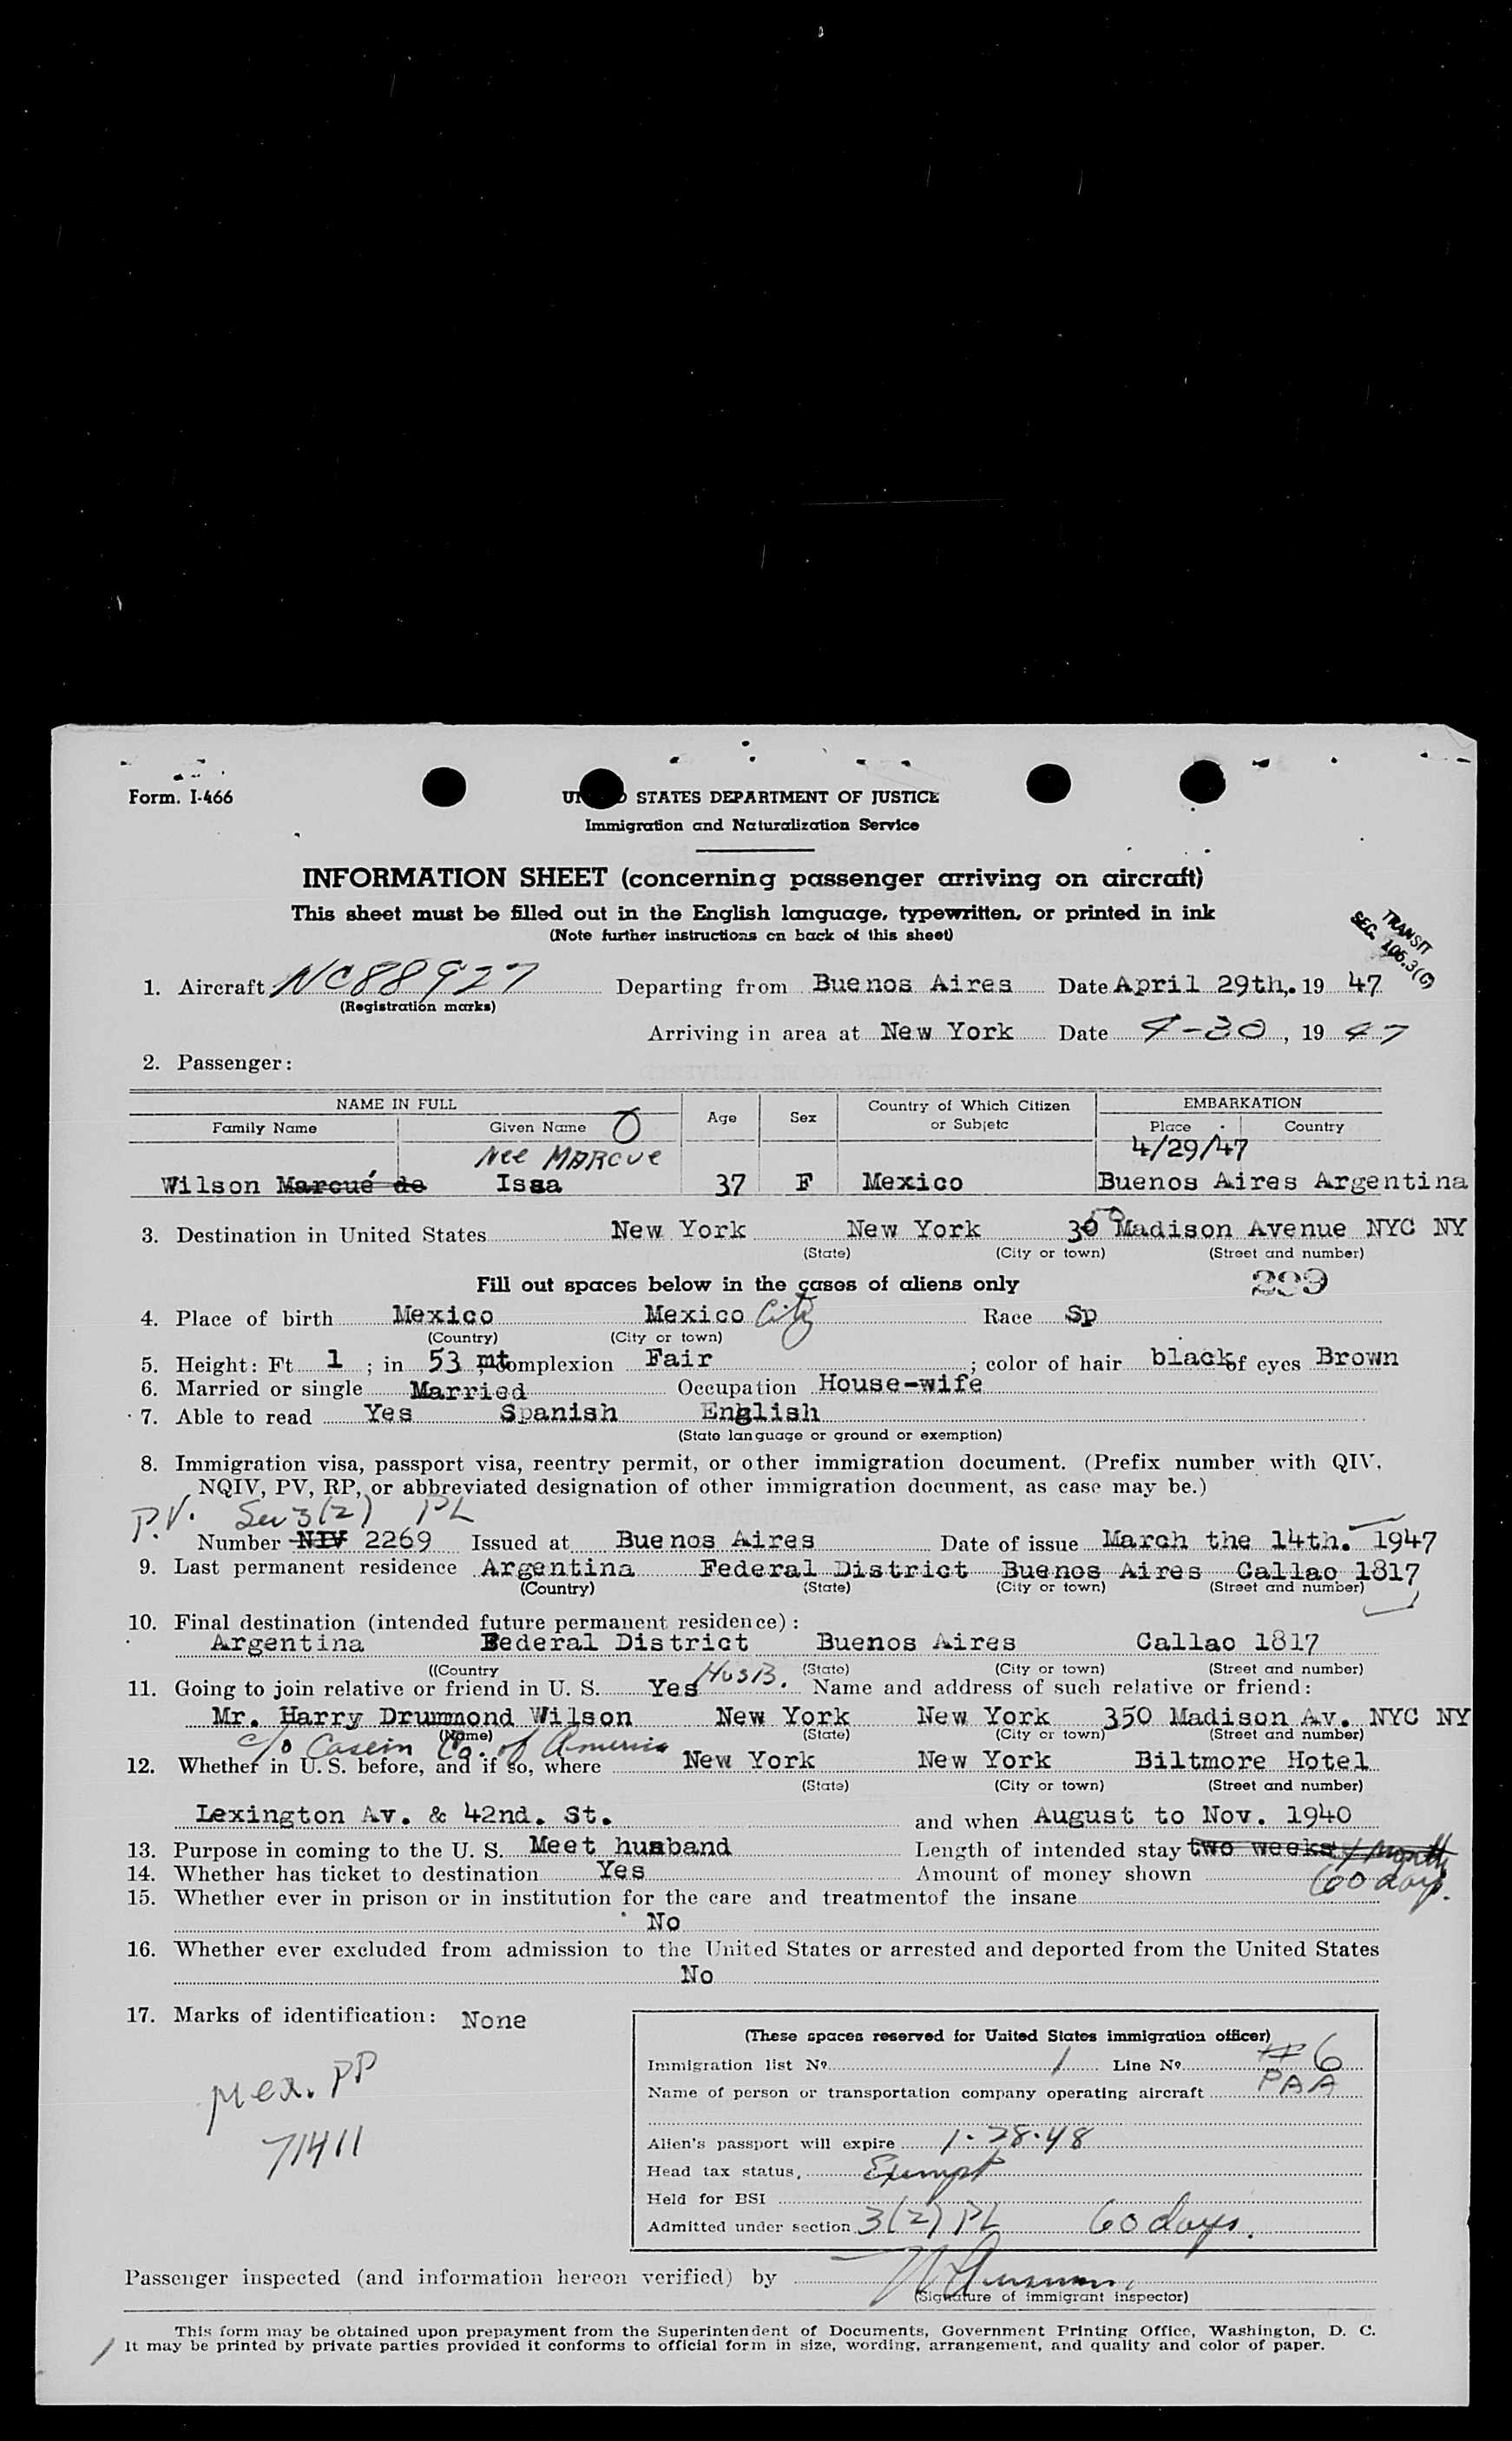 Form. I-466
STATES DEPARTMENT OF JUSTICE
Immigration and Naturalization Service
INFORMATION SHEET (concerning passenger arriving on aircraft)
This sheet must be filled out in the English language, typewritten, or printed in ink
(Note further instructions on back of this sheet)
TRANSIT
SEC. 106.3(G)
1. Aircraft NC88927 Departing from Buenos Aires Date April 29th,. 19 47
(Registration marks)
Arriving in area at New York Date 4-30, 19 47
2. Passenger:
NAME IN FULL Age Sex Country of Which Citizen or Subjetc EMBARKATION
Family Name Given Name Place Country
Nee MARCUE 4/29/47
Wilson Marcué de Issa 37 F Mexico Buenos Aires Argentina
3. Destination in United States New York New York 350 Madison Avenue NYC NY
(State) (City or town) (Street and number)
Fill out spaces below in the cases of aliens only 299
4. Place of birth Mexico Mexico City Race Sp
(Country) (City or town)
5. Height: Ft 1 ; in 53 mt complexion Fair ; color of hair black of eyes Brown
6. Married or single Married Occupation House-wife
7. Able to read Yes Spanish English
(State language or ground or exemption)
8. Immigration visa, passport visa, reentry permit, or other immigration document. (Prefix number with QIV,
NQIV, PV, RP, or abbreviated designation of other immigration document, as case may be.)
P.V. Sec 3(2) PL
Number NIV 2269 Issued at Buenos Aires Date of issue March the 14th. 1947
9. Last permanent residence Argentina Federal District Buenos Aires Callao 1817
(Country) (State) (City or town) (Street and number)
10. Final destination (intended future permanent residence):
Argentina Federal District Buenos Aires Callao 1817
((Country (State) (City or town) (Street and number)
11. Going to join relative or friend in U. S. Yes HusB. Name and address of such relative or friend:
Mr. Harry Drummond Wilson New York New York 350 Madison Av. NYC NY
(Name) (State) (City or town) (Street and number)
c/o Casein Co. of America
12. Whether in U. S. before, and if so, where New York New York Biltmore Hotel
(State) (City or town) (Street and number)
Lexington Av. & 42nd. St. and when August to Nov. 1940
13. Purpose in coming to the U. S. Meet husband Length of intended stay two weeks 1 month
14. Whether has ticket to destination Yes Amount of money shown 60 days.
15. Whether ever in prison or in institution for the care and treatmentof the insane
No
16. Whether ever excluded from admission to the United States or arrested and deported from the United States
No
17. Marks of identification: None
Mex. PP
71411
(These spaces reserved for United States immigration officer)
Immigration list Nº 1 Line Nº #6
Name of person or transportation company operating aircraft PAA
Alien's passport will expire 1-28-48
Head tax status, Exempt
Held for BSI
Admitted under section 3(2) PL 60 days.
Passenger inspected (and information hereon verified) by
(Signature of immigrant inspector)
This form may be obtained upon prepayment from the Superintendent of Documents, Government Printing Office, Washington, D. C.
It may be printed by private parties provided it conforms to official form in size, wording, arrangement, and quality and color of paper.